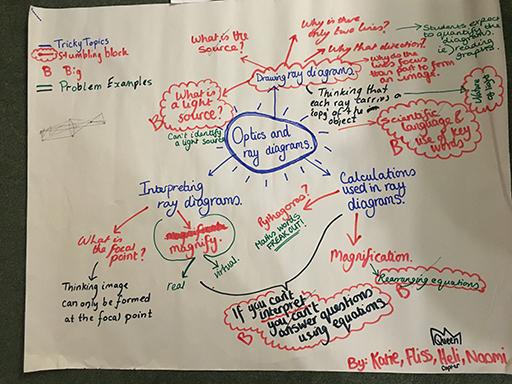 Tricky Topics
Stumbling block
B Big
Problem Examples
What is
the Source?
Why is there
only two lines?
Why that direction?
Students expect
to quantify the
diagrams.
ie) reading
graphs.
Why do the
two focus
to form
an image.
Drawing ray diagrams.
Thinking that
each ray carries a
copy of the
object
What is
a light
source?
B
Can't identify
a light source
Optics and
ray diagrams.
Scientific
language &
use of key
words
B
Interpreting
ray diagrams.
What is
the focal
point?
Thinking image
can only be formed
at the focal point
magnify.
real
virtual.
Calculations
used in ray
diagrams.
Pythagoras?
Maths words
FREAKOUT!
Magnification.
Rearranging equations
B
If you can't
interpret
you can't
answer questions
using equations
B
Queen
By: Katie, Fliss, Heli, Naomi